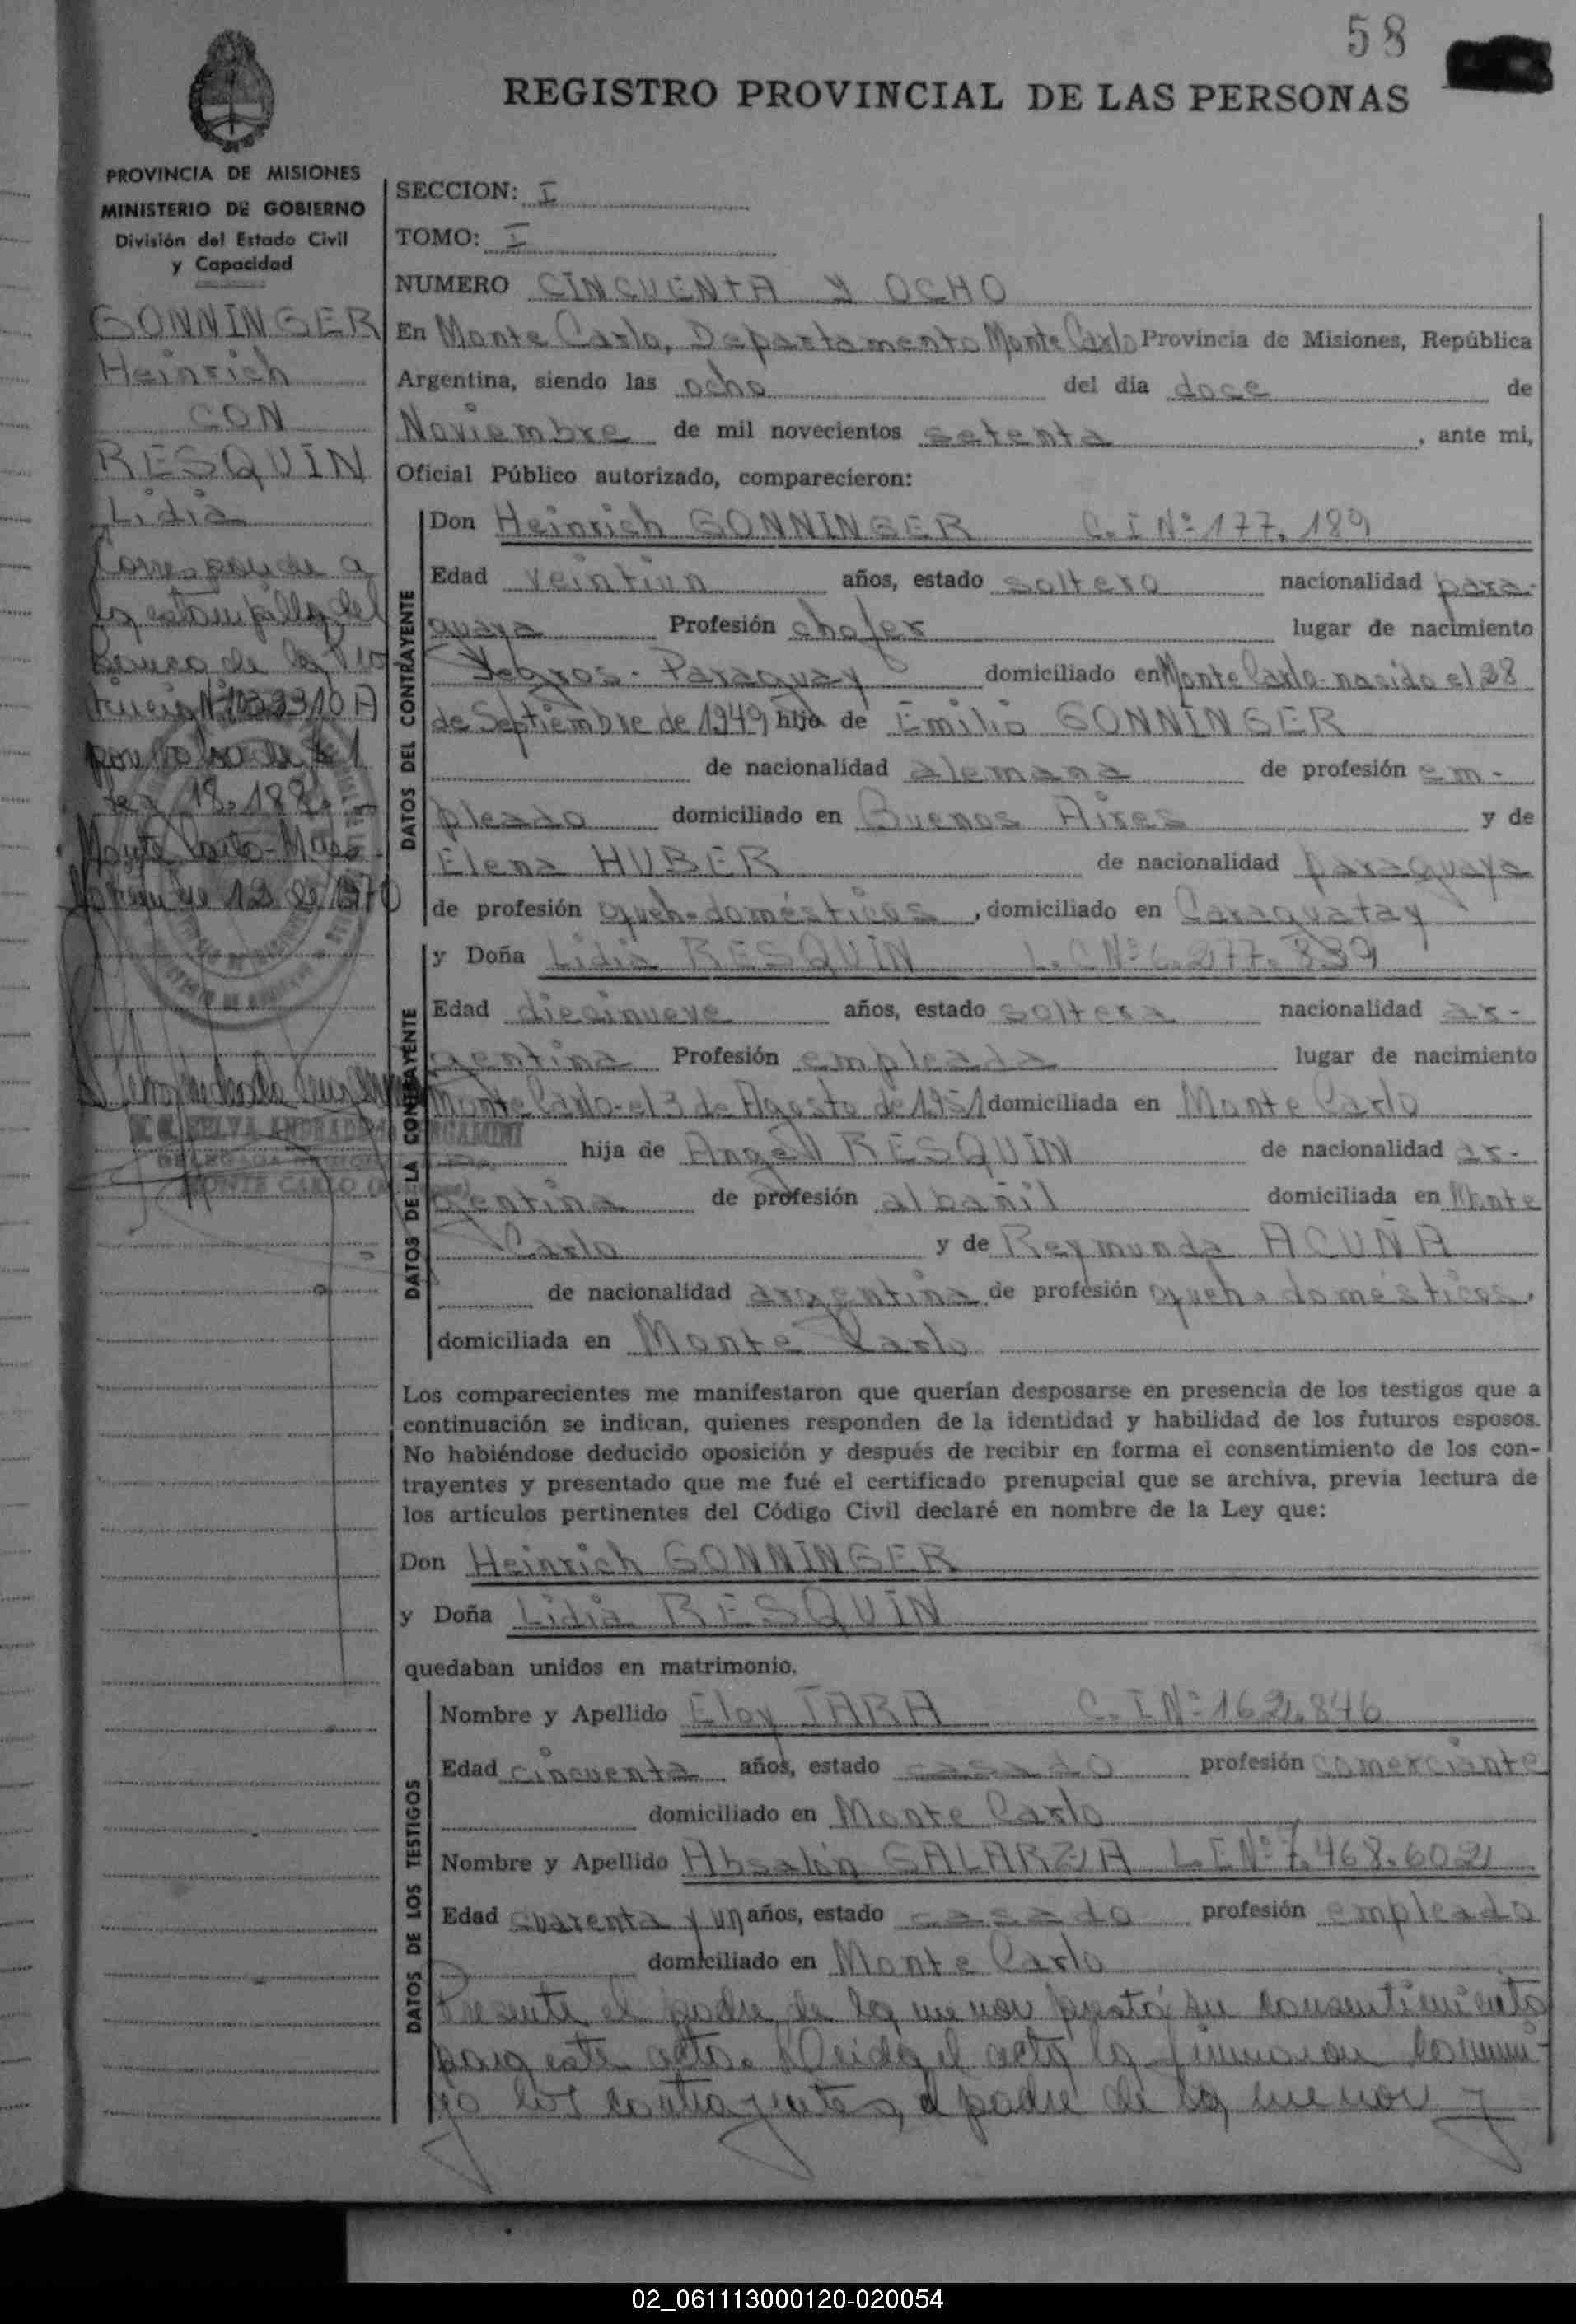 58
REGISTRO PROVINCIAL DE LAS PERSONAS
PROVINCIA DE MISIONES
MINISTERIO DE GOBIERNO
División del Estado Civil
y Capacidad
GONNINGER
Heinrich
CON
RESQUIN
Lidia
Corresponde a
la estampilla del
Banco de la Pro
vincia Nº
por valor de $ 1
Ley 18.188.
Monte Carlo - Mnes
Noviembre 12 de 1970
MONTE CARLO
SECCION: I
TOMO: I
NUMERO CINCUENTA Y OCHO
En Monte Carlo, Departamento Monte Carlo Provincia de Misiones, República
Argentina, siendo las ocho del día doce de
Noviembre de mil novecientos setenta, ante mi,
Oficial Público autorizado, comparecieron:
DATOS DEL CONTRAYENTE
Don Heinrich GONNINGER C.I Nº 177.189
Edad veintiun años, estado soltero nacionalidad para-
guaya Profesión chofer lugar de nacimiento
Yegros - Paraguay domiciliado en Monte Carlo - nacido el 28
de Septiembre de 1949 hijo de Emilio GONNINGER
de nacionalidad alemana de profesión em-
pleado domiciliado en Buenos Aires y de
Elena HUBER de nacionalidad paraguaya
de profesión queh. domésticos, domiciliado en Caraguatay
DATOS DE LA CONTRAYENTE
y Doña Lidia RESQUIN L.C Nº 6.277.339
Edad diecinueve años, estado soltera nacionalidad ar-
gentina Profesión empleada lugar de nacimiento
Monte Carlo - el 3 de Agosto de 1951 domiciliada en Monte Carlo
hija de Angel RESQUIN de nacionalidad ar-
gentina de profesión albañil domiciliada en Monte
Carlo y de Reymunda ACUÑA
de nacionalidad argentina de profesión queh. domésticos.
domiciliada en Monte Carlo
Los comparecientes me manifestaron que querían desposarse en presencia de los testigos que a
continuación se indican, quienes responden de la identidad y habilidad de los futuros esposos.
No habiéndose deducido oposición y después de recibir en forma el consentimiento de los con-
trayentes y presentado que me fué el certificado prenupcial que se archiva, previa lectura de
los artículos pertinentes del Código Civil declaré en nombre de la Ley que:
Don Heinrich GONNINGER
y Doña Lidia RESQUIN
quedaban unidos en matrimonio.
DATOS DE LOS TESTIGOS
Nombre y Apellido Eloy JARA C.I Nº 162.846
Edad cincuenta años, estado casado profesión comerciante
domiciliado en Monte Carlo
Nombre y Apellido Absalón GALARZA L.E Nº 7.468.602
Edad cuarenta y un años, estado casado profesión empleado
domiciliado en Monte Carlo
Presente el padre de la menor prestó su consentimiento
para este acto. Leida el acta la firmaron conmi-
go los contrayentes, el padre de la menor y
02_061113000120-020054